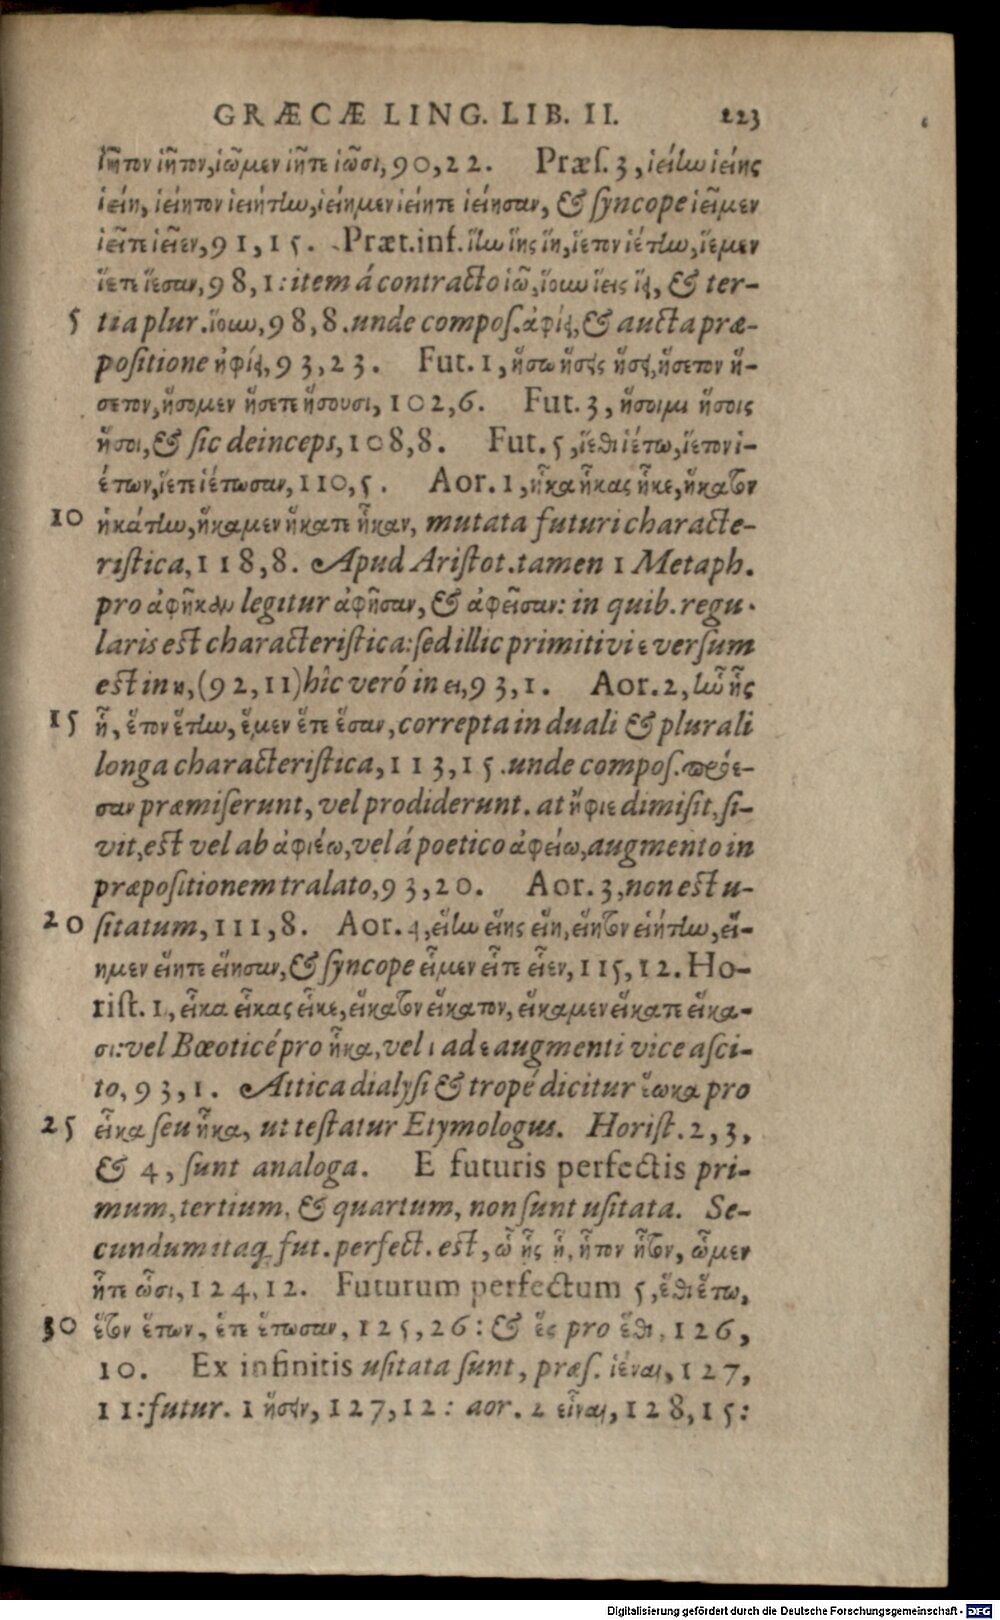 GRÆCÆ LING. LIB. II. 223
ἱῆτον ἱῆτον, ἱῶμεν ἱῆτε ἱῶσι, 90, 22. Præſ. 3, ἱείην ἱείης
ἱείη, ἱείητον ἱειήτην, ἱείημεν ἱείητε ἱείησαν, & ſyncope ἱεῖμεν
ἱεῖτε ἱεῖεν, 91, 15. Præt. inf. ἵην ἵης ἵη, ἵετον ἱέτην, ἵεμεν
ἵετε ἵεσαν, 98, 1: item á contracto ἱῶ, ἵουν ἵεις ἵει, & ter-
5 tia plur. ἵουν, 98, 8. unde compoſ. ἀφίει, & aucta præ-
poſitione ἠφίει, 93, 23. Fut. 1, ἥσω ἥσεις ἥσει, ἥσετον ἥ-
σετον, ἥσομεν ἥσετε ἥσουσι, 102, 6. Fut. 3, ἥσοιμι ἥσοις
ἥσοι, & ſic deinceps, 108, 8. Fut. 5, ἵεθι ἱέτω, ἵετον ἱ-
έτων, ἵετε ἱέτωσαν, 110, 5. Aor. 1, ἧκα ἧκας ἧκε, ἥκατον
10 ἡκάτην, ἥκαμεν ἥκατε ἧκαν, mutata futuri characte-
riſtica, 118, 8. Apud Ariſtot. tamen 1 Metaph.
pro ἀφῆκαν legitur ἀφῆσαν, & ἀφεῖσαν: in quib. regu-
laris eſt characteriſtica: ſed illic primitivi ε verſum
eſt in η, (92, 11) hîc veró in ει, 93, 1. Aor. 2, ἣν ἧς
15 ἧ, ἕτον ἕτην, ἕμεν ἕτε ἕσαν, correpta in duali & plurali
longa characteriſtica, 113, 15. unde compoſ. πρόε-
σαν præmiſerunt, vel prodiderunt. at ἤφιε dimiſit, ſi-
vit, eſt vel ab ἀφιέω, vel á poetico ἀφείω, augmento in
præpoſitionem tralato, 93, 20. Aor. 3, non eſt u-
20 ſitatum, 111, 8. Aor. 4, εἵην εἵης εἵη, εἵητον εἱήτην, εἵ-
ημεν εἵητε εἵησαν, & ſyncope εἷμεν εἷτε εἷεν, 115, 12. Ho-
riſt. 1, εἷκα εἷκας εἷκε, εἵκατον εἵκατον, εἵκαμεν εἵκατε εἵκα-
σι: vel Bœoticé pro ἧκα, vel ι ad ε augmenti vice aſci-
to, 93, 1. Attica dialyſi & tropé dicitur ἕωκα pro
25 εἷκα ſeu ἧκα, ut teſtatur Etymologus. Horiſt. 2, 3,
& 4, ſunt analoga. E futuris perfectis pri-
mum, tertium, & quartum, non ſunt uſitata. Se-
cundum itaq; fut. perfect. eſt, ὧ ἧς ἧ, ἧτον ἧτον, ὧμεν
ἧτε ὧσι, 124, 12. Futurum perfectum 5, ἕθι ἕτω,
30 ἕτον ἕτων, ἕτε ἕτωσαν, 125, 26: & ἕς pro ἕθι, 126,
10. Ex infinitis uſitata ſunt, præſ. ἱέναι, 127,
11: futur. 1 ἥσειν, 127, 12: aor. 2 εἷναι, 128, 15:
Digitalisierung gefördert durch die Deutsche Forschungsgemeinschaft - DFG